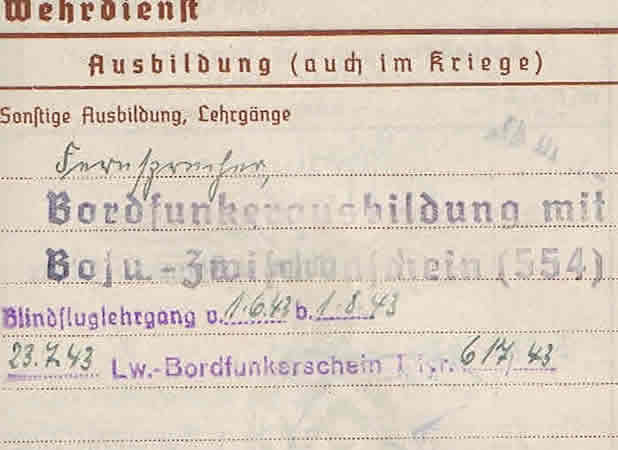 Wehrdienst
Ausbildung (auch im Kriege)
Sonstige Ausbildung, Lehrgänge
Fernsprecher,
Bordfunkerausbildung mit
Bofu.-Zwischenschein (554)
Blindfluglehrgang v. 1.6.43 b. 1.8.43
23.7.43 Lw.-Bordfunkerschein I Nr. 617/43